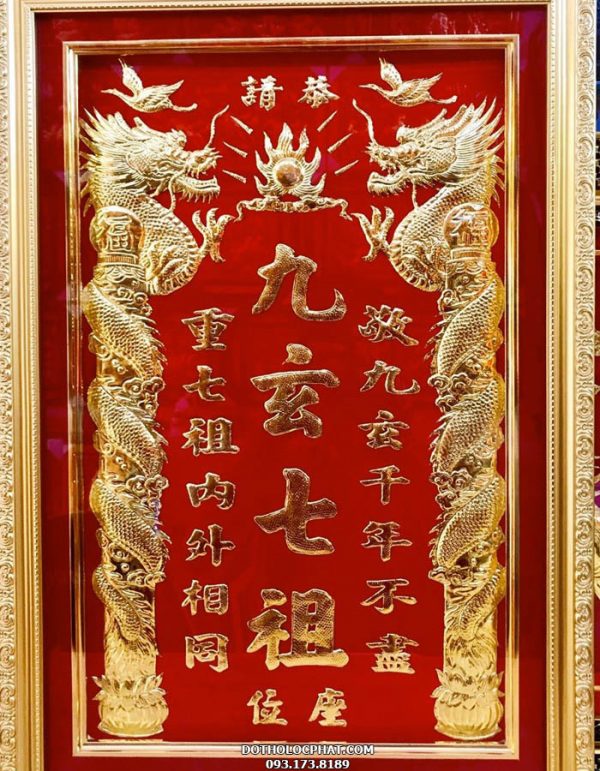 恭請
敬九玄千年不盡
九玄七祖
重七祖內外相同
座位
福
福
DOTHOLOCPHAT.COM
093.173.8189